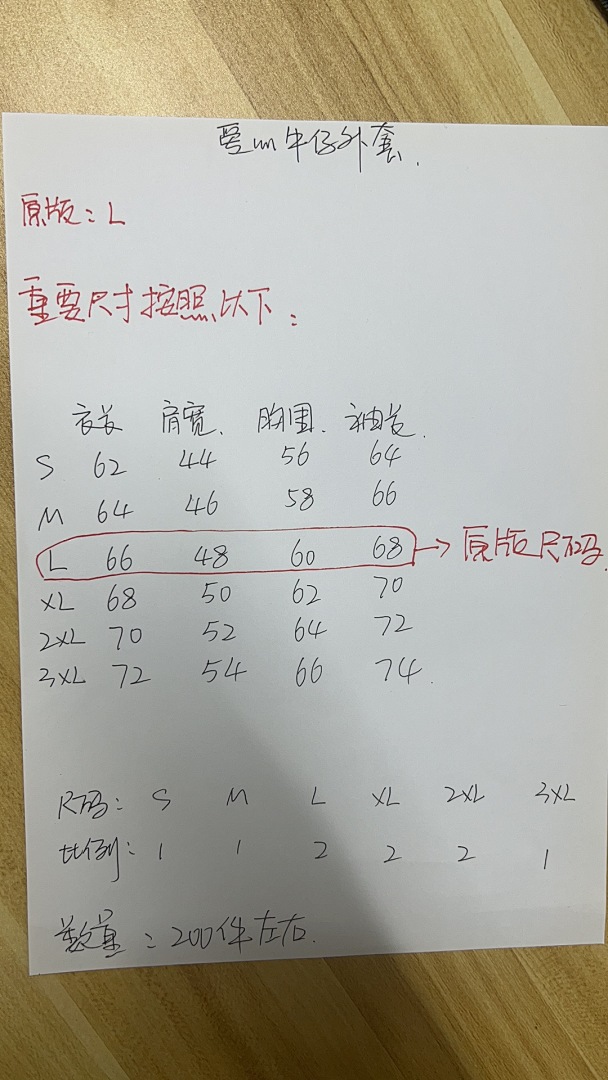 牛仔外套.
原版：L
重要尺寸按照以下：
衣长 肩宽. 胸围. 袖长.
S 62 44 56 64
M 64 46 58 66
L 66 48 60 68 → 原版尺码.
XL 68 50 62 70
2XL 70 52 64 72
3XL 72 54 66 74.
尺码： S M L XL 2XL 3XL
比例： 1 1 2 2 2 1
数量：200件左右.